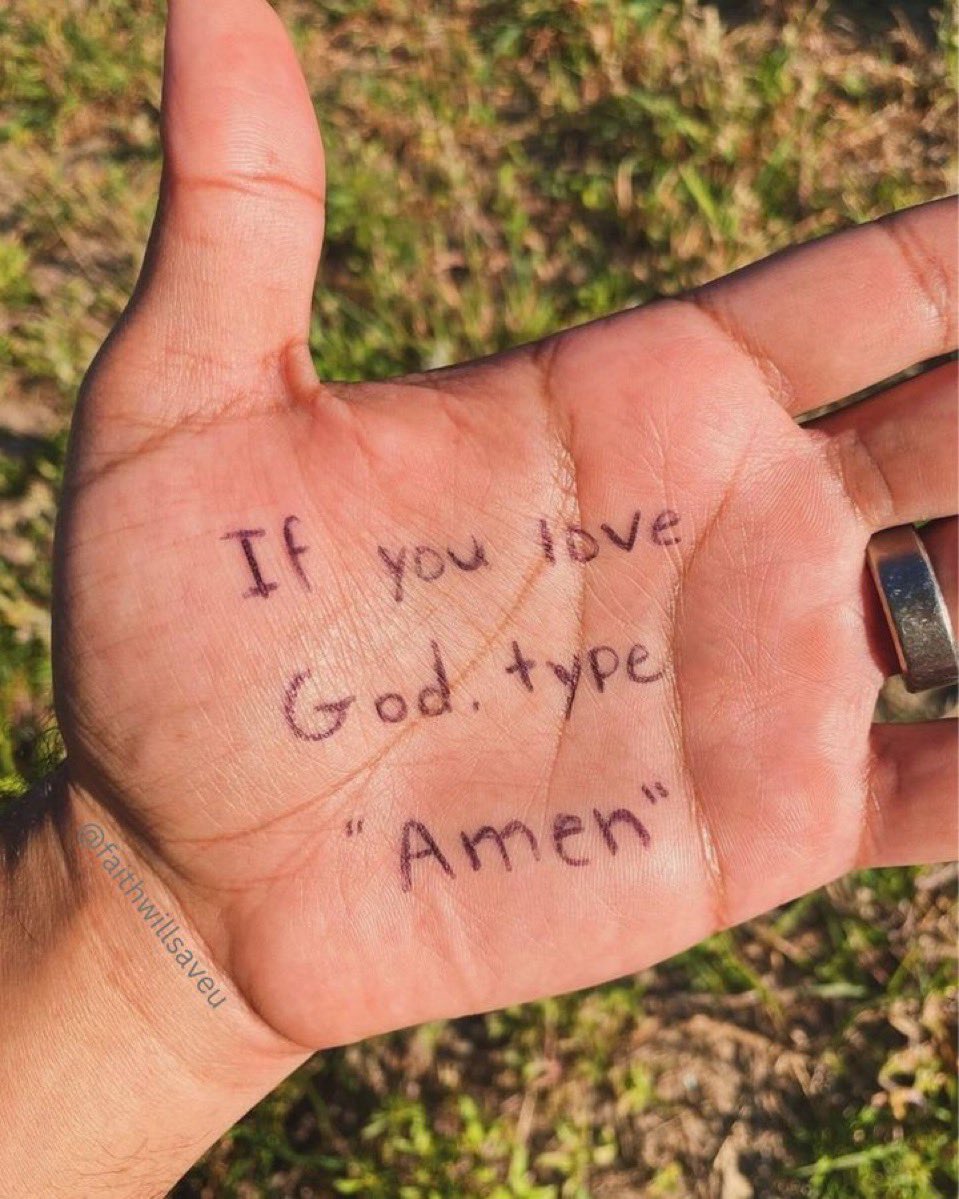 If you love
God. type
"Amen"
@faithwillsaveu